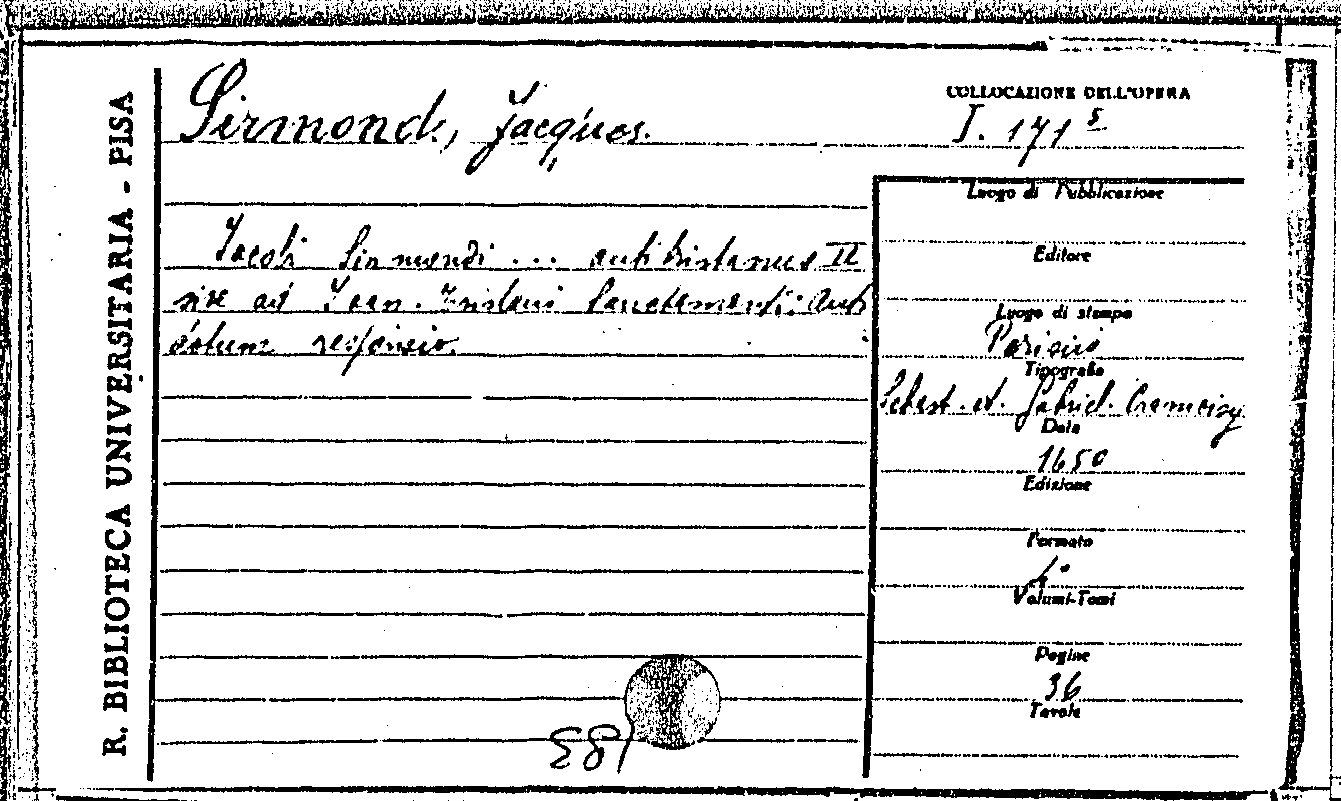 R. BIBLIOTECA UNIVERSITARIA - PISA
Sirmond, Jacques.
COLLOCAZIONE DELL'OPERA
I. 171 5
Iacobi Sirmondi ... antitristanus II
sive ad Ioan. Tristani Sanctamanti: anti
dotum responsio.
Luogo di Pubblicazione
Editore
Luogo di stampa
Parisiis
Tipografia
Sebast. et. Gabriel. Cramoisy
Data
1650
Edizione
Formato
4°
Volumi-Tomi
Pagine
36
Tavole